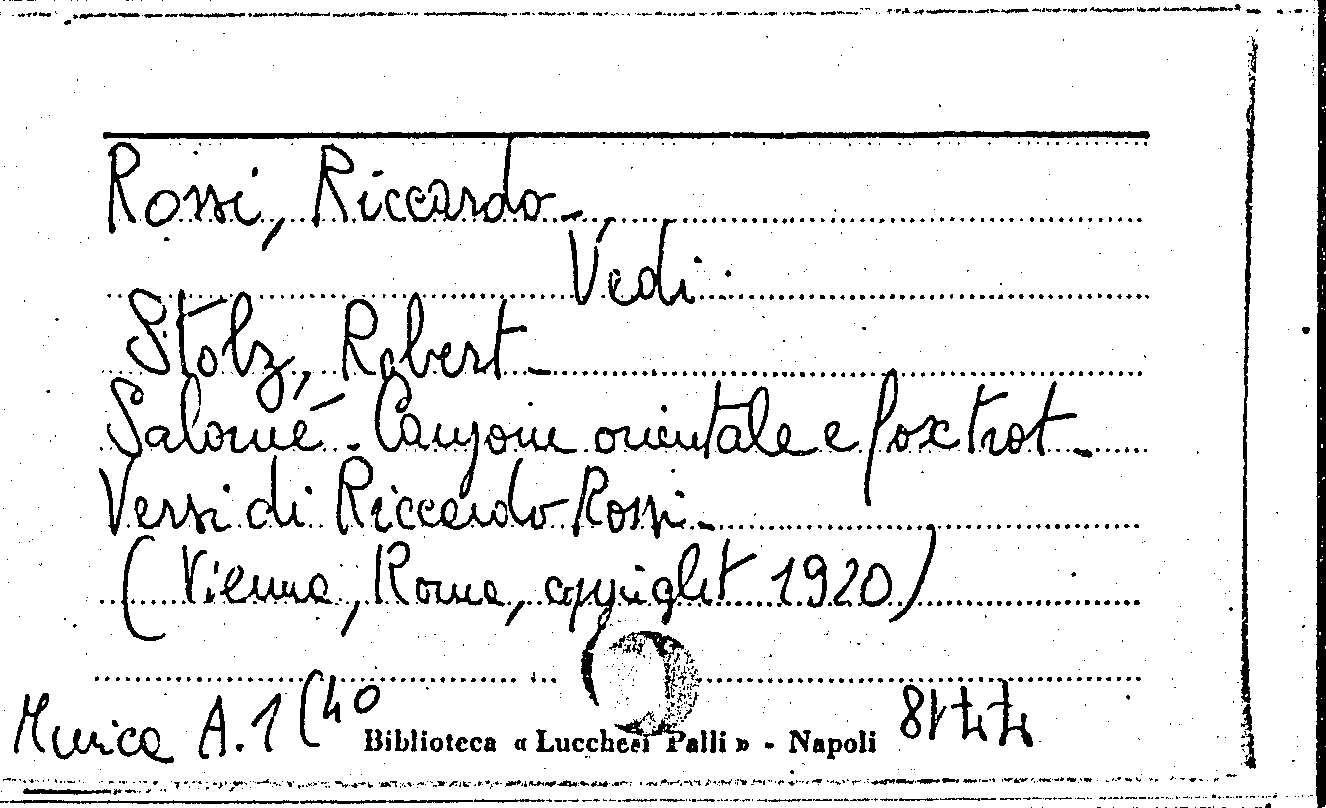 Rossi, Riccardo -
Vedi
Stolz, Robert -
Salomé - Canzone orientale e foxtrot -
Versi di Riccardo Rossi. -
(Vienna, Roma, copyright 1920)
Musica A.1 (40
Biblioteca « Lucchesi Palli » - Napoli